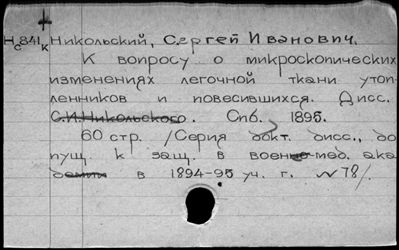 Н 841 Никольский, Сергей Иванович.
с к
К вопросу о микроскопических
изменениях легочной ткани утоп-
ленников и повесившихся. Дисс.
С.И.Никольского. Спб. 1895.
60 стр. /Серия докт. дисс., до
пущ. к защ. в военно-мед. ака
в 1894-95 уч. г. №78/.